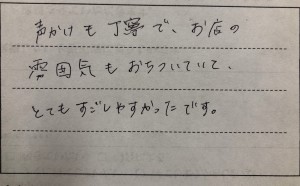 声かけも丁寧で、お店の
雰囲気もおちついていて、
とてもすごしやすかったです。